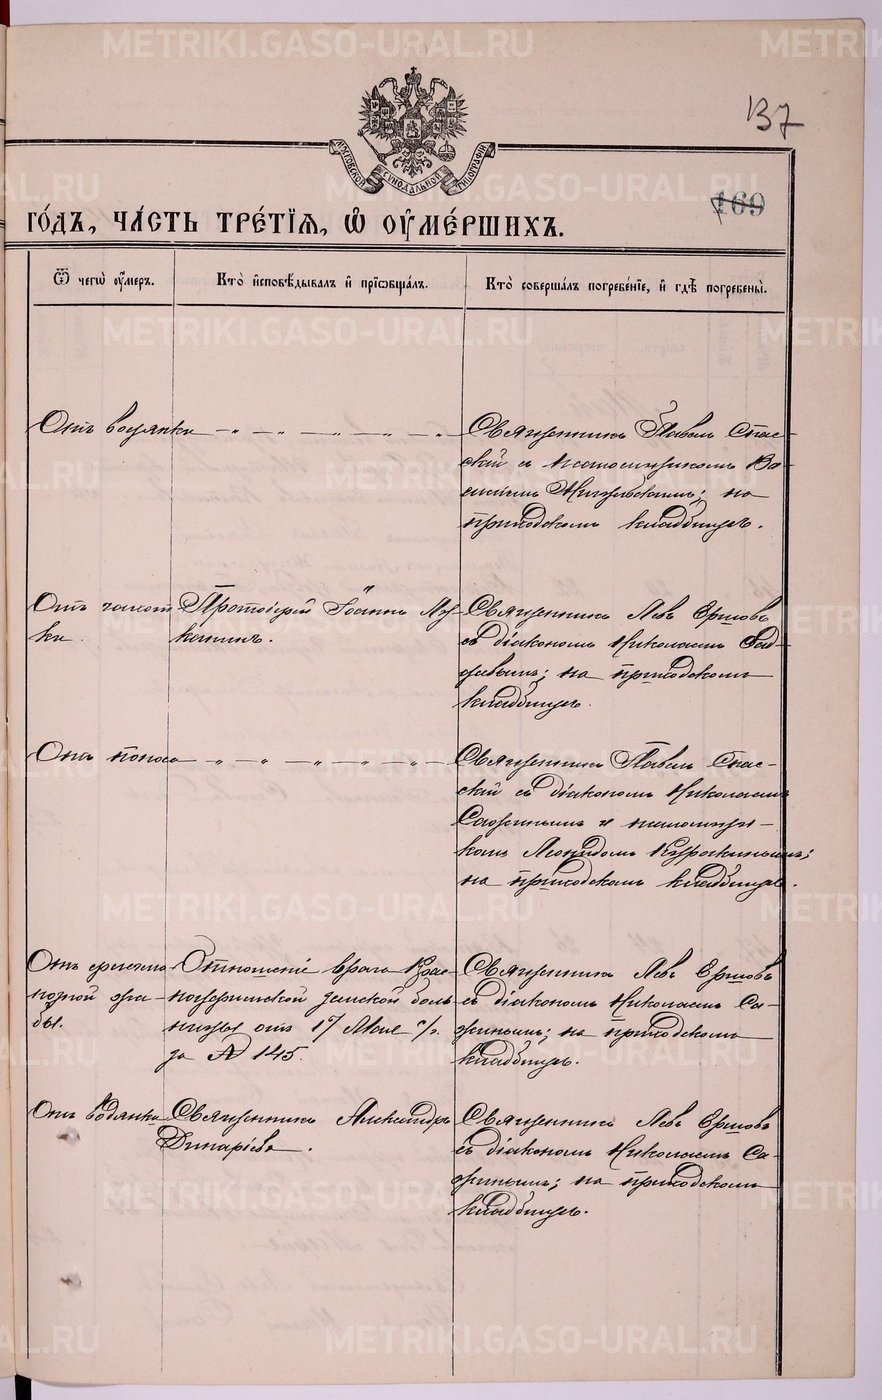 METRIKI.GASO-URAL.RU
137
МОСКОВСКОЙ СѴНОДАЛЬНОЙ ТИПОГРАФІИ
169
ГО́ДЪ, ЧА́СТЬ ТРЕ́ТІѦ, Ѽ ОУ҆МЕ́РШИХЪ.
Ѿ чегѡ̀ оу҆́меръ.
Кто̀ и҆сповѣ́дывалъ и҆ прїѡбща́лъ.
Кто̀ соверша́лъ погребе́нїе, и҆ гдѣ̀ погребены̀.
Отъ водянки — „ — „ — „ — „ — „
Священникъ Павелъ Спас-
скій съ псаломщикомъ Ва-
силіемъ; на
приходскомъ кладбищѣ.
Отъ чахот
ки.
Протоіерей Іоаннъ Лу
канинъ.
Священникъ Левъ Ершовъ
съ діакономъ Николаемъ
на приходскомъ
кладбищѣ.
Отъ поноса — „ — „ — „ — „ — „
Священникъ Павелъ Спас-
скій съ діакономъ Николаемъ
Сажинымъ и псаломщи-
комъ Леонидомъ
на приходскомъ кладбищѣ.
Отъ флегмо
нозной жа-
бы.
Отношеніе врача Крас-
ноуфимской земской боль
ницы отъ 17 Мая с/г.
за № 145.
Священникъ Левъ Ершовъ
съ діакономъ Николаемъ Са-
жинымъ; на приходскомъ
кладбищѣ.
Отъ водянки
Священникъ Александръ
Священникъ Левъ Ершовъ
съ діакономъ Николаемъ Са-
жинымъ; на приходскомъ
кладбищѣ.